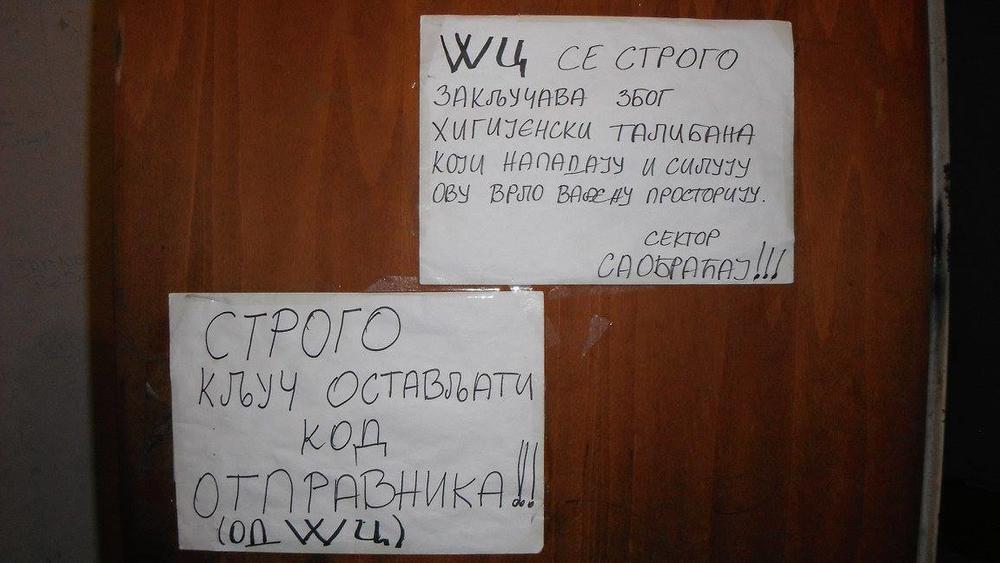 WЦ СЕ СТРОГО
ЗАКЉУЧАВА ЗБОГ
ХИГИЈЕНСКИ ТАЛИБАНА
КОЈИ НАПАДАЈУ И СИЛУЈУ
ОВУ ВРЛО ВАЖНУ ПРОСТОРИЈУ.
СЕКТОР
САОБРАЋАЈ!!!
СТРОГО
КЉУЧ ОСТАВЉАТИ
КОД
ОТПРАВНИКА!!!
(ОД WЦ)